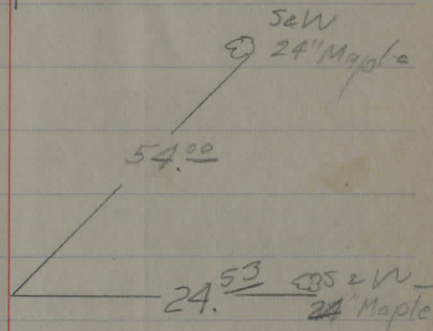 S & W
24" Maple
54.00
24.53
S & W
24" Maple